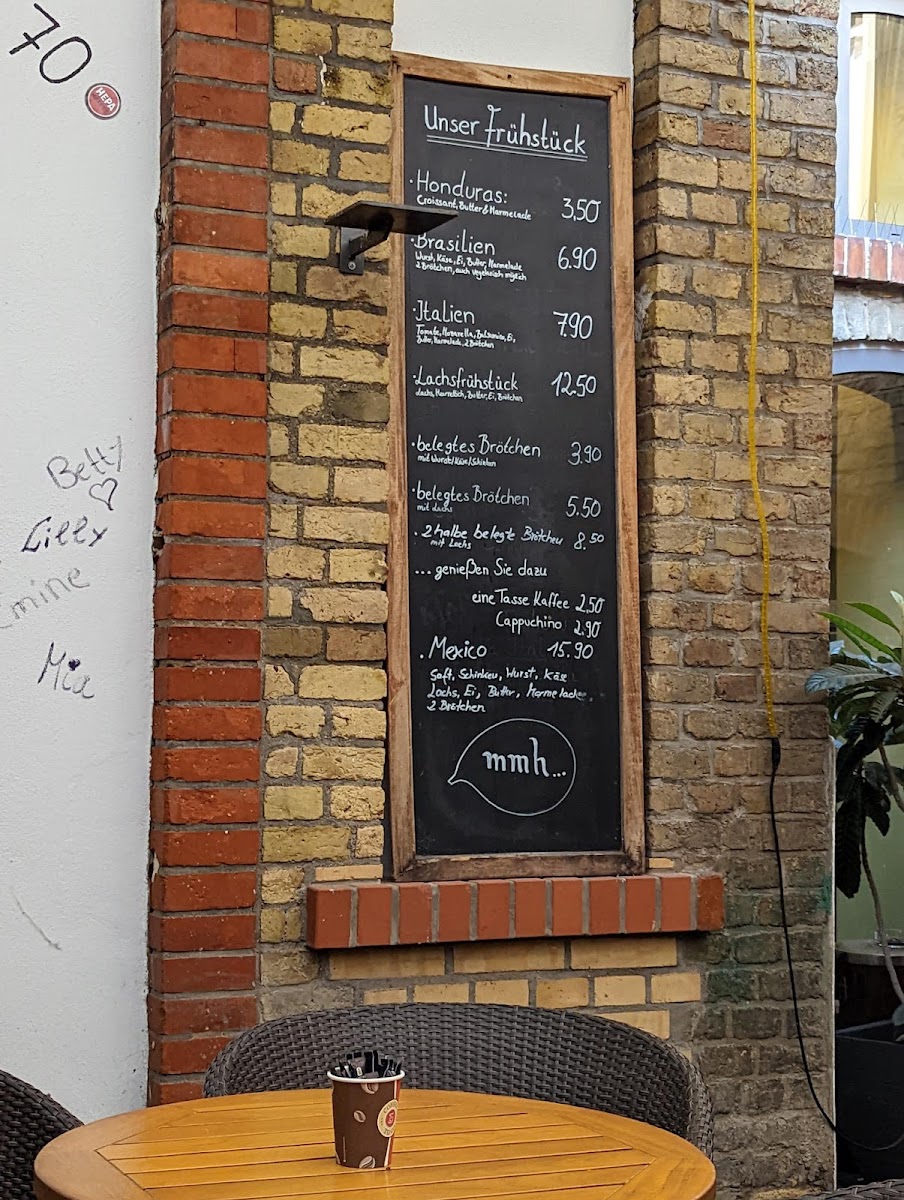 70
HEPA
Unser Frühstück
· Honduras: 3,50
Croissant, Butter & Marmelade
· Brasilien 6.90
Wurst, Käse, Ei, Butter, Marmelade
2 Brötchen, auch vegetarisch möglich
· Italien 7.90
Tomate, Mozzarella, Balsamico, Ei,
Butter, Marmelade, 2 Brötchen
· Lachsfrühstück 12.50
Lachs, Meerettich, Butter, Ei, Brötchen
· belegtes Brötchen 3.90
mit Wurst/Käse/Schinken
· belegtes Brötchen 5.50
mit Lachs
· 2 halbe belegte Brötchen 8.50
mit Lachs
... genießen Sie dazu
eine Tasse Kaffee 2,50
Cappuchino 2.90
. Mexico 15.90
Saft, Schinken, Wurst, Käse
Lachs, Ei, Butter, Marmelade,
2 Brötchen
mmh...
Betty
Lilly
Emine
Mia